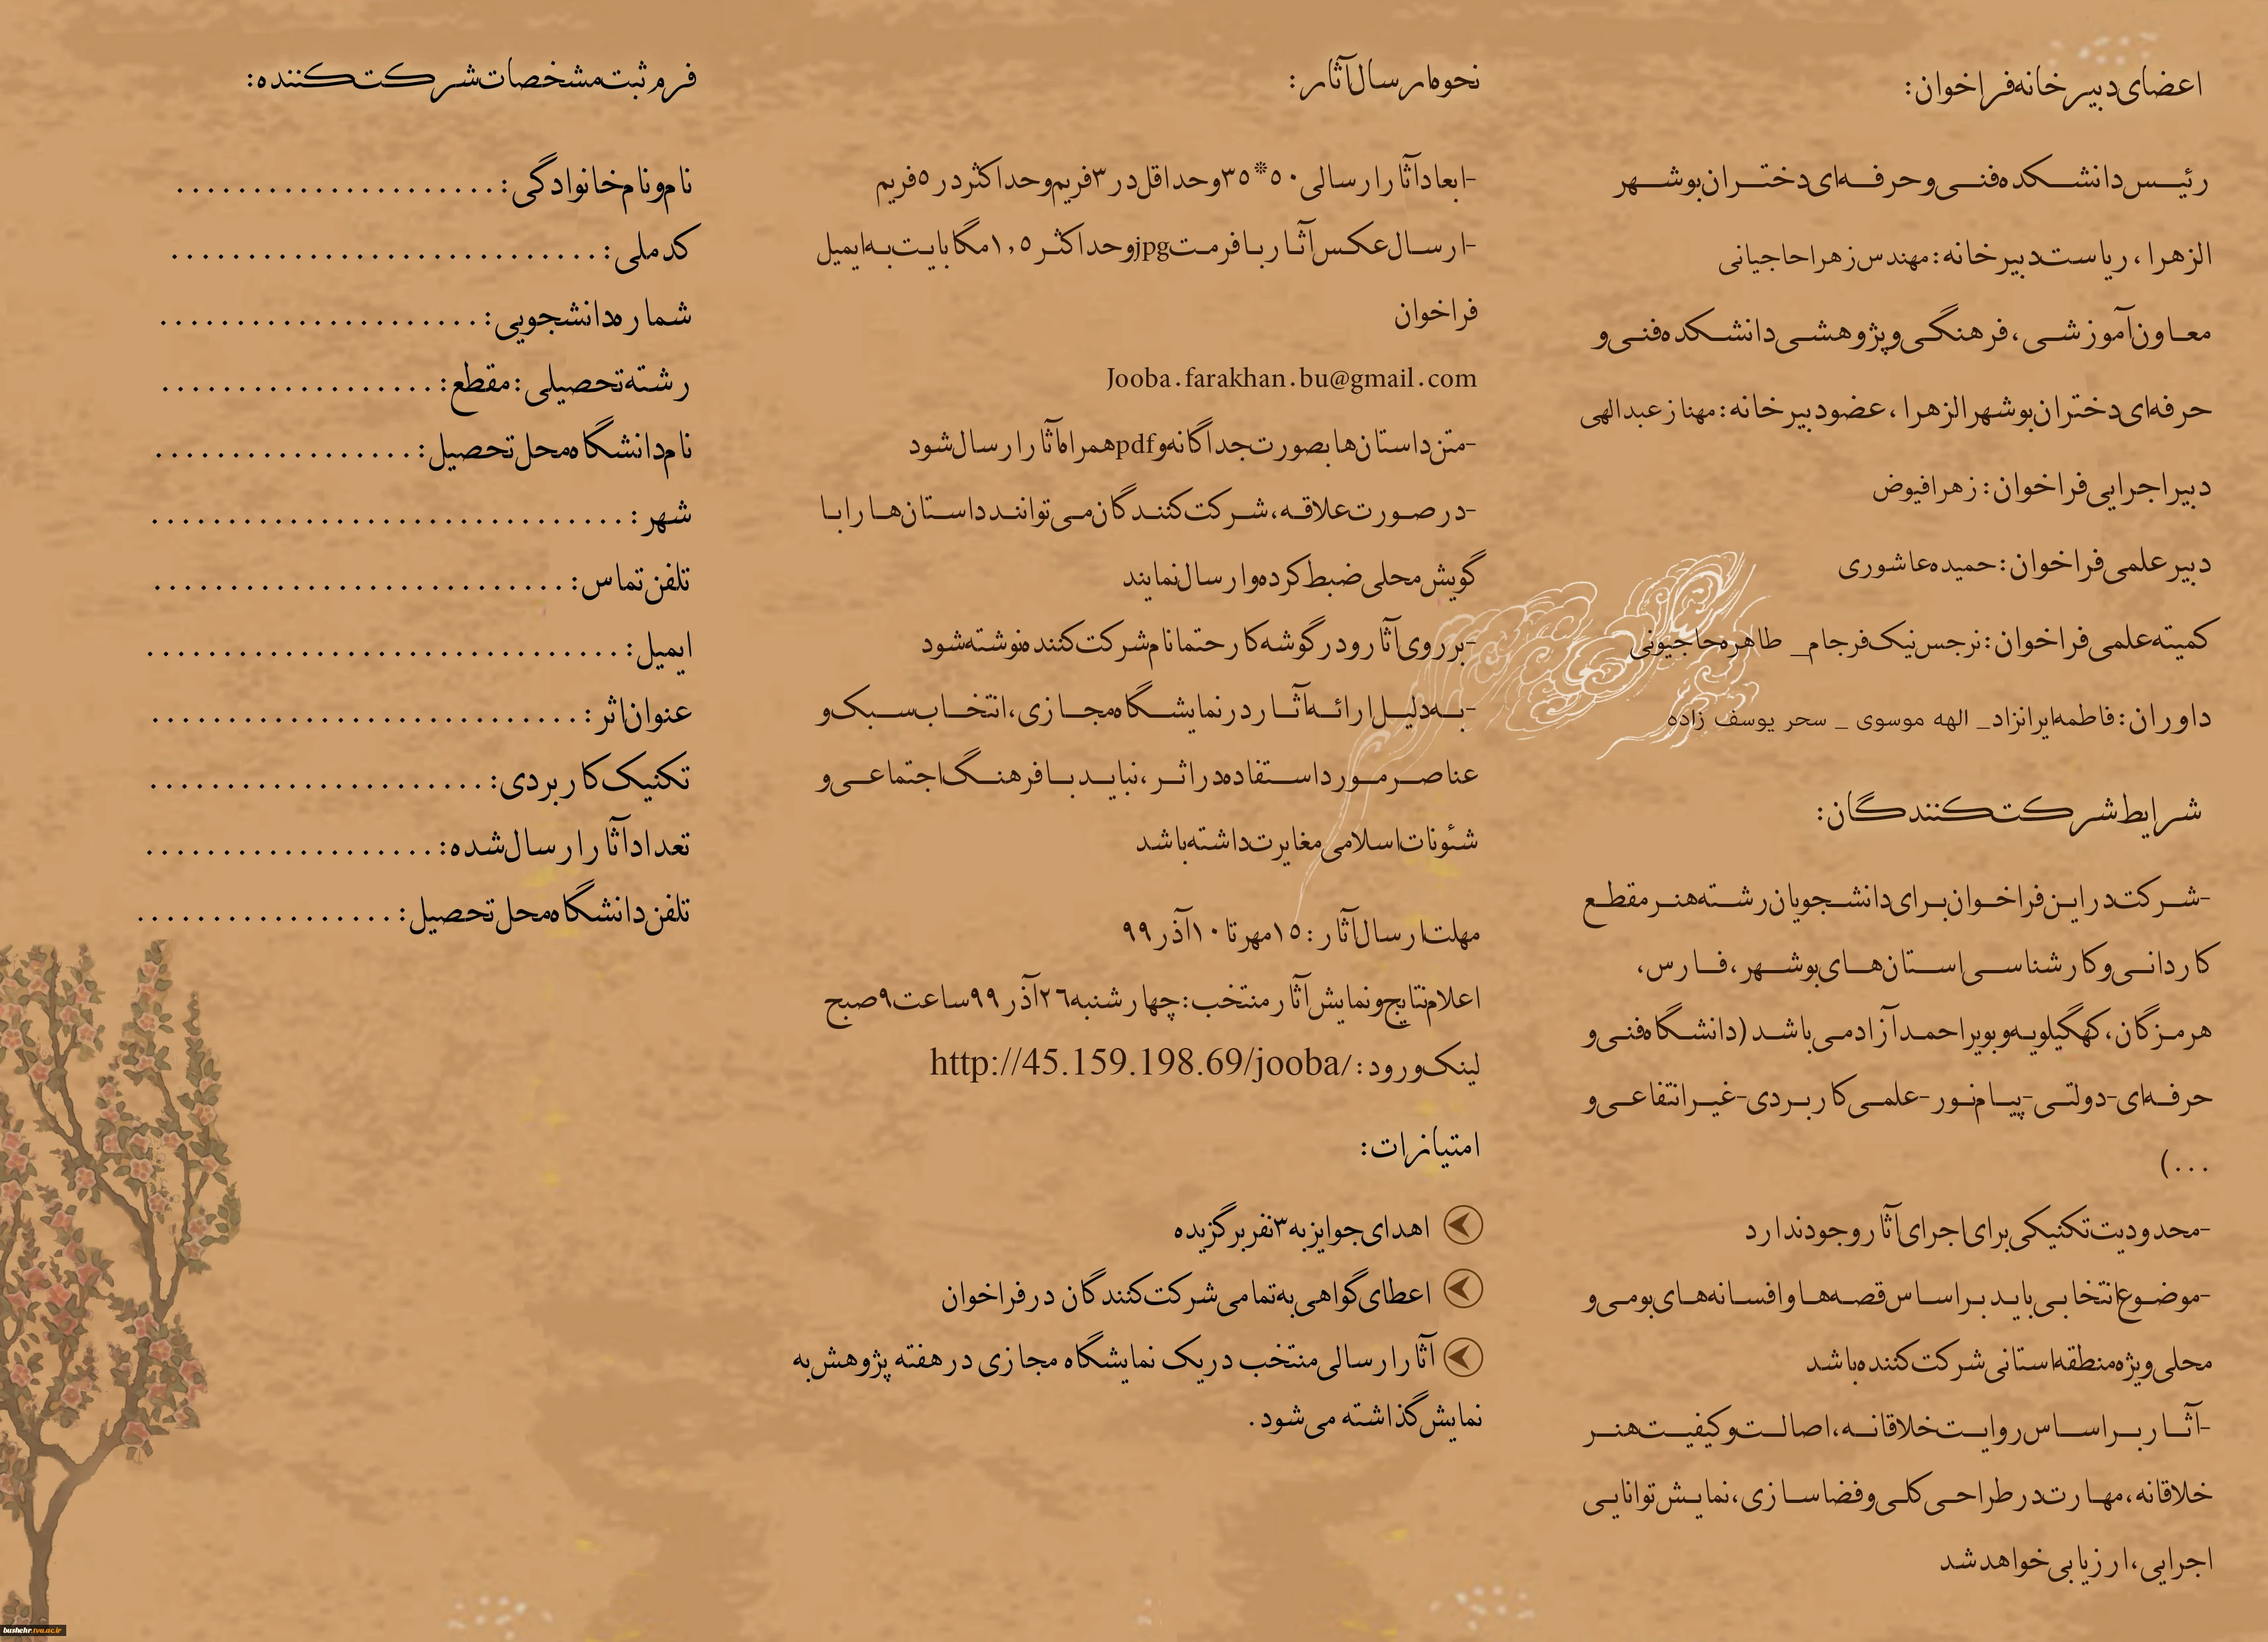 اعضای دبیرخانه فراخوان:
رئیس دانشکده فنی و حرفه‌ای دختران بوشهر
الزهرا، ریاست دبیرخانه: مهندس زهرا حاجیانی
معاون آموزشی، فرهنگی و پژوهشی دانشکده فنی و
حرفه‌ای دختران بوشهر الزهرا، عضو دبیرخانه: مهناز عبدالهی
دبیر اجرایی فراخوان: زهرا فیوض
دبیر علمی فراخوان: حمیده عاشوری
کمیته علمی فراخوان: نرجس نیک فرجام_ طاهره حاجیونی
داوران: فاطمه ایرانزاد_ الهه موسوی _ سحر یوسف زاده
شرایط شرکت کنندگان:
-شرکت در این فراخوان برای دانشجویان رشته هنر مقطع
کاردانی و کارشناسی استان‌های بوشهر، فارس،
هرمزگان، کهگیلویه و بویراحمد آزاد می باشد (دانشگاه فنی و
حرفه‌ای-دولتی-پیام نور-علمی کاربردی-غیرانتفاعی و
...)
-محدودیت تکنیکی برای اجرای آثار وجود ندارد
-موضوع انتخابی باید براساس قصه‌ها و افسانه‌های بومی و
محلی ویژه منطقه استانی شرکت کننده باشد
-آثار براساس روایت خلاقانه، اصالت و کیفیت هنر
خلاقانه، مهارت در طراحی کلی و فضاسازی، نمایش توانایی
اجرایی، ارزیابی خواهد شد
نحوه ارسال آثار:
-ابعاد آثار ارسالی ۵۰*۳۵ و حداقل در ۳ فریم و حداکثر در ۵ فریم
-ارسال عکس آثار با فرمت jpg و حداکثر ۱,۵ مگابایت به ایمیل
فراخوان
Jooba.farakhan.bu@gmail.com
-متن داستان‌ها بصورت جداگانه و pdf همراه آثار ارسال شود
-در صورت علاقه، شرکت کنندگان می توانند داستان‌ها را با
گویش محلی ضبط کرده و ارسال نمایند
-بر روی آثار و در گوشه کار حتما نام شرکت کننده نوشته شود
-به دلیل ارائه آثار در نمایشگاه مجازی، انتخاب سبک و
عناصر مورد استفاده در اثر، نباید با فرهنگ اجتماعی و
شئونات اسلامی مغایرت داشته باشد
مهلت ارسال آثار: ۱۵ مهر تا ۱۰ آذر ۹۹
اعلام نتایج و نمایش آثار منتخب: چهارشنبه ۲۶ آذر ۹۹ ساعت ۹ صبح
لینک ورود: http://45.159.198.69/jooba/
امتیازات:
اهدای جوایز به ۳ نفر برگزیده
اعطای گواهی به تمامی شرکت کنندگان در فراخوان
آثار ارسالی منتخب در یک نمایشگاه مجازی در هفته پژوهش به
نمایش گذاشته می شود.
فرم ثبت مشخصات شرکت کننده:
نام و نام خانوادگی: .....................
کد ملی: ............................
شماره دانشجویی: .....................
رشته تحصیلی: مقطع: ..................
نام دانشگاه محل تحصیل: .................
شهر: ...............................
تلفن تماس: ...........................
ایمیل: ...............................
عنوان اثر: ............................
تکنیک کاربردی: ......................
تعداد آثار ارسال شده: ...................
تلفن دانشگاه محل تحصیل: .................
bushehr.tvu.ac.ir